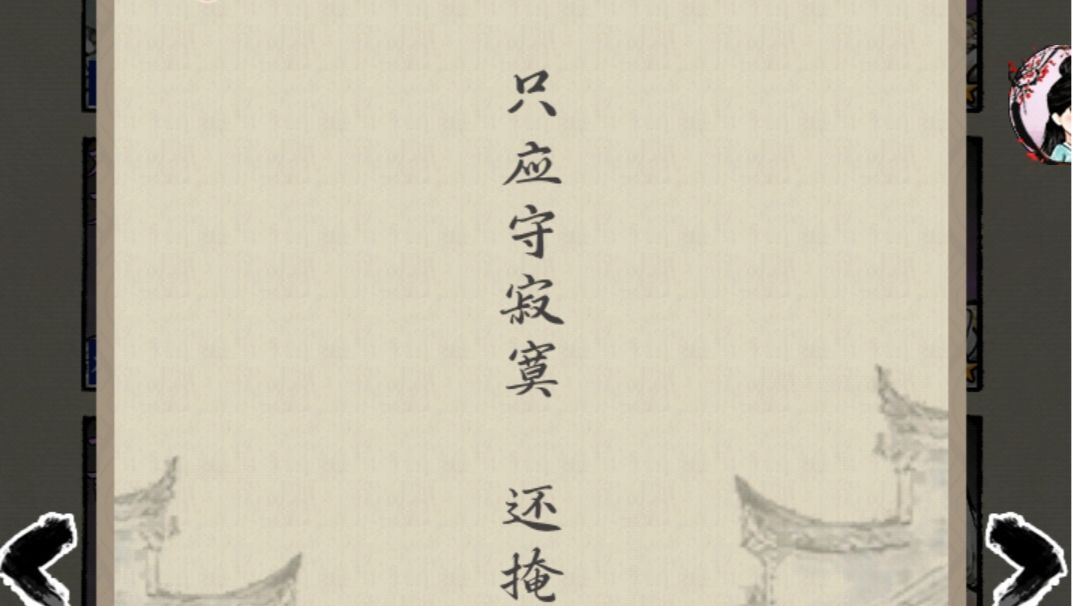 只应守寂寞
还掩